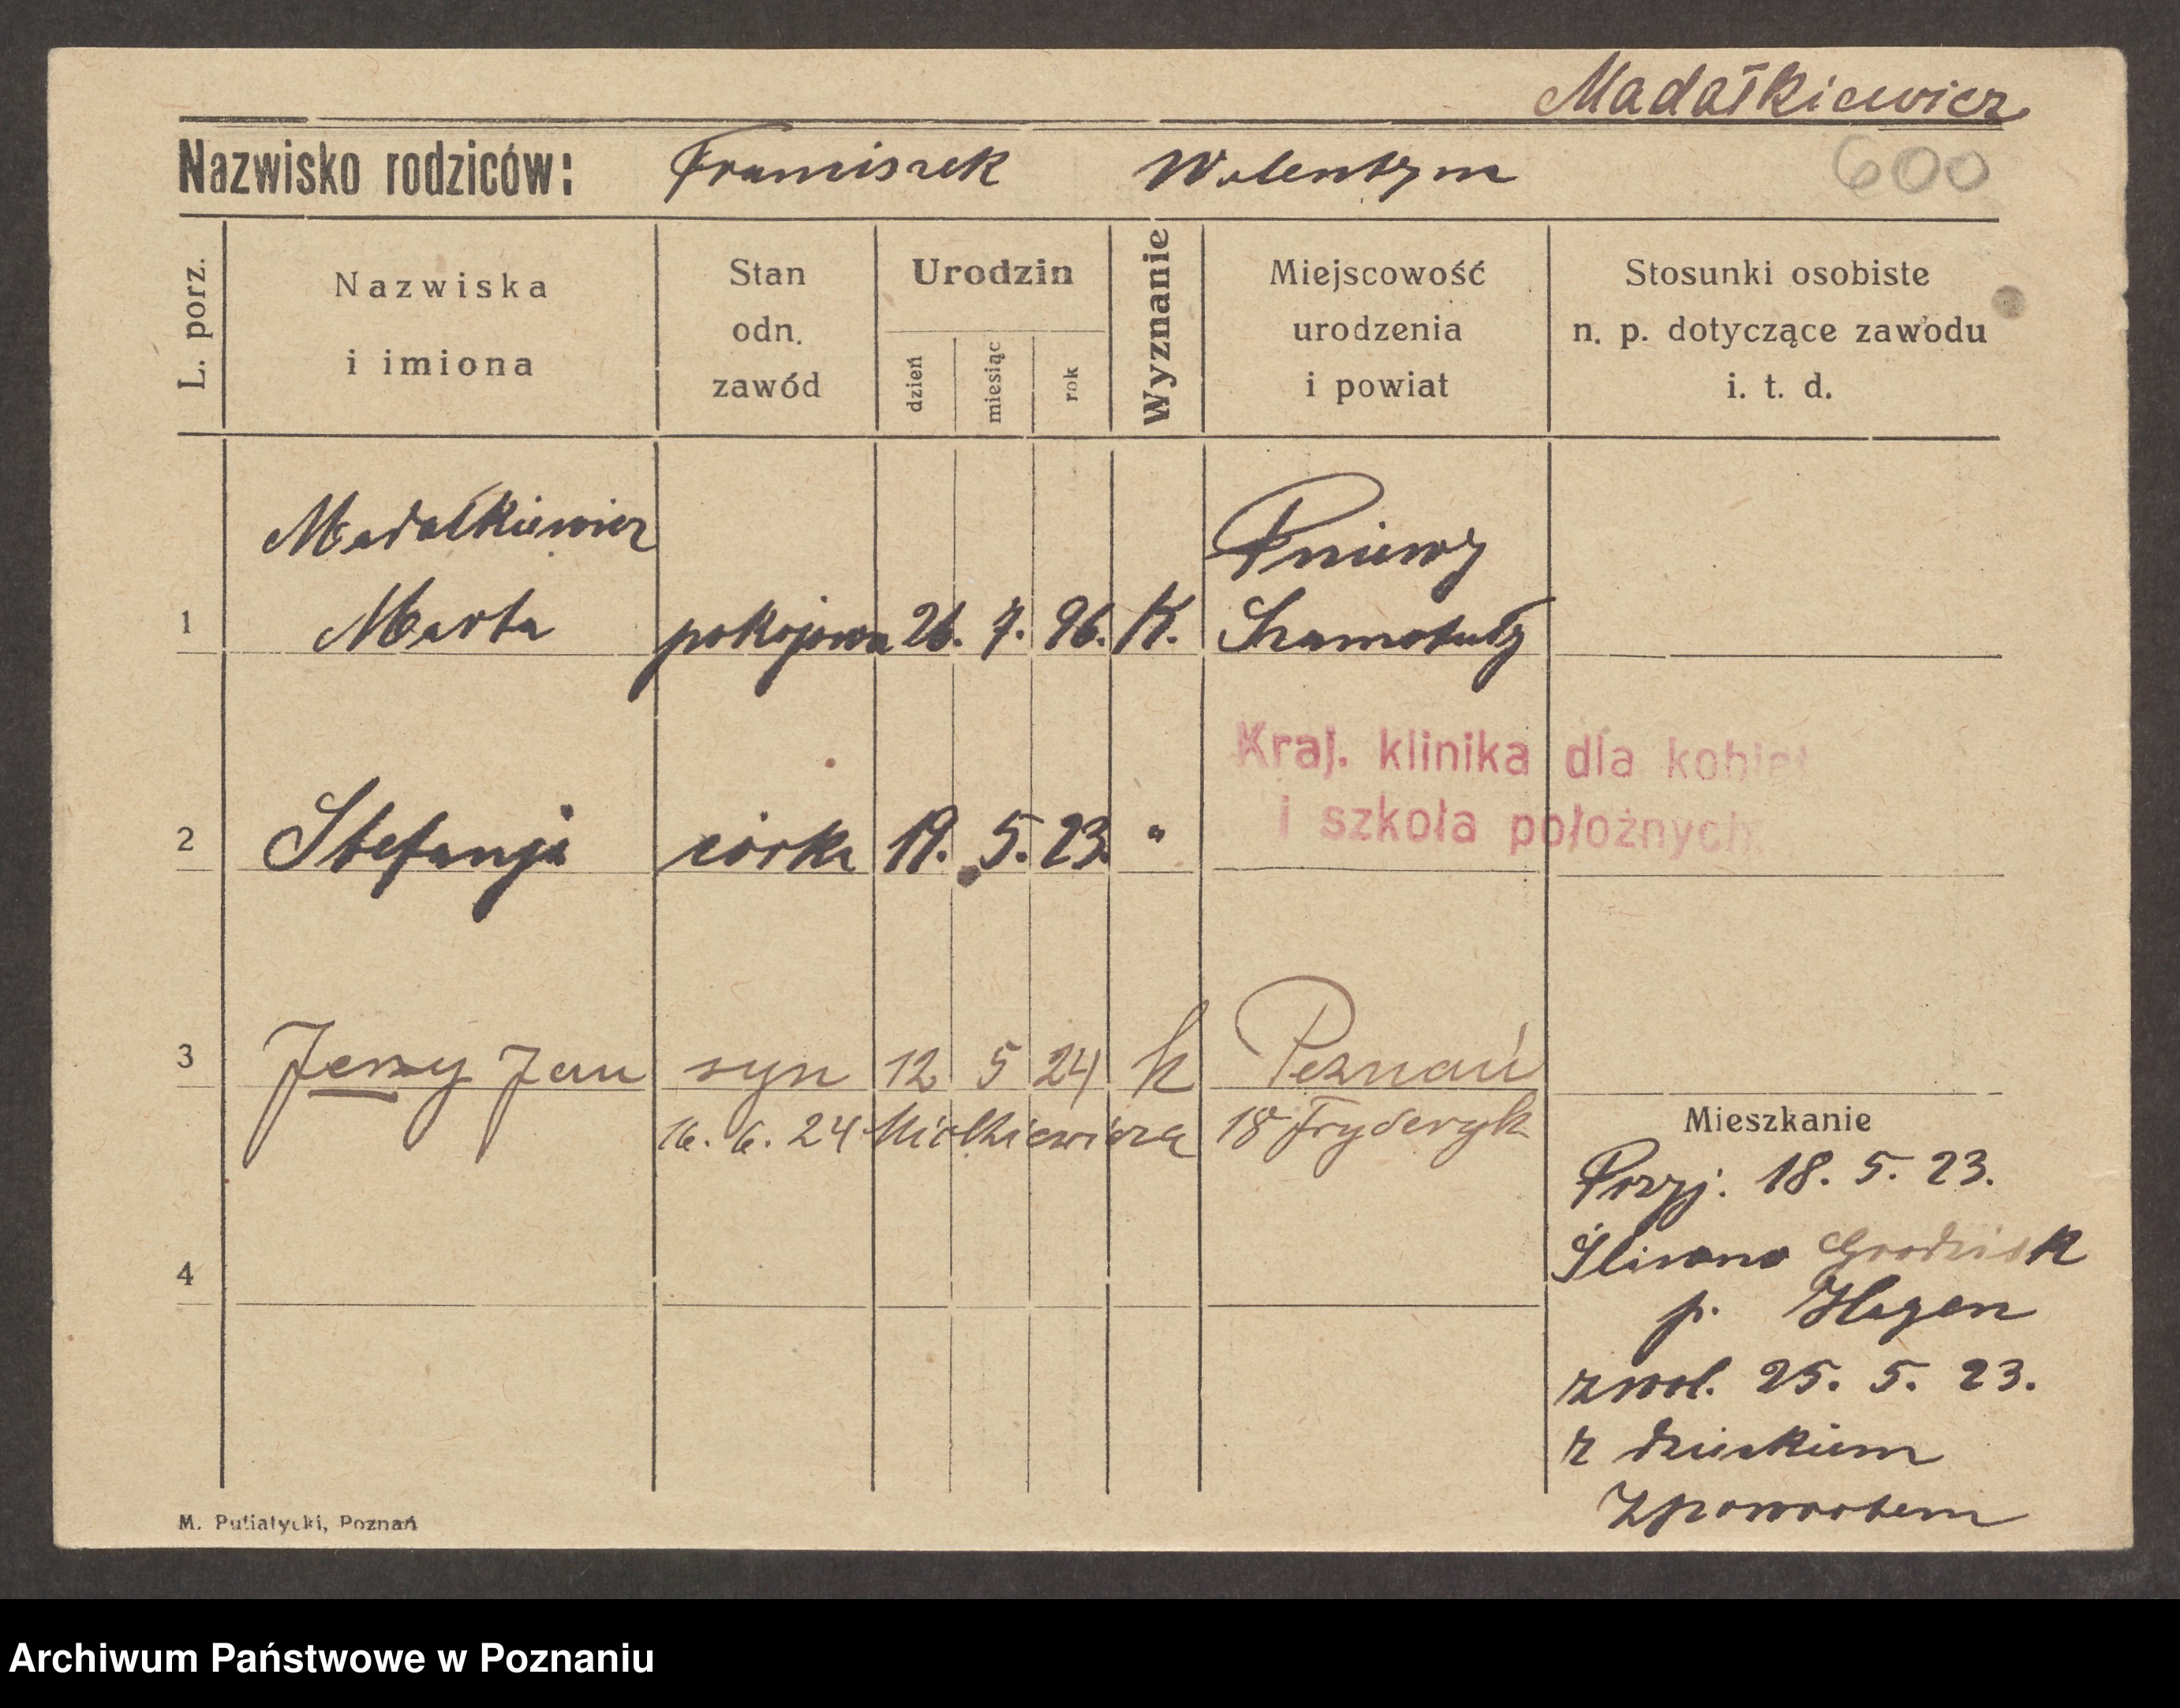 Madałkiewicz
Nazwisko rodziców: Franciszek Walentyna
600
L. porz.
Nazwiska
i imiona
Stan
odn.
zawód
Urodzin
dzień
miesiąc
rok
Wyznanie
Miejscowość
urodzenia
i powiat
Stosunki osobiste
n. p. dotyczące zawodu
i. t. d.
Madałkiewicz Pniewy
1 Marta pokojowa 26. 7. 96. K. Szamotuły
Kraj. klinika dla kobiet
i szkoła położnych
2 Stefanja córka 19. 5. 23. "
3 Jerzy Jan syn 12 5 24 k Poznań
16. 6. 24 18 Fryderyk
Mieszkanie
Przyj. 18. 5. 23.
4
Śliwno Grodzisk
p. Hagen
zwol. 25. 5. 23.
z dzieckiem
zpowrotem
M. Putiatycki, Poznań
Archiwum Państwowe w Poznaniu